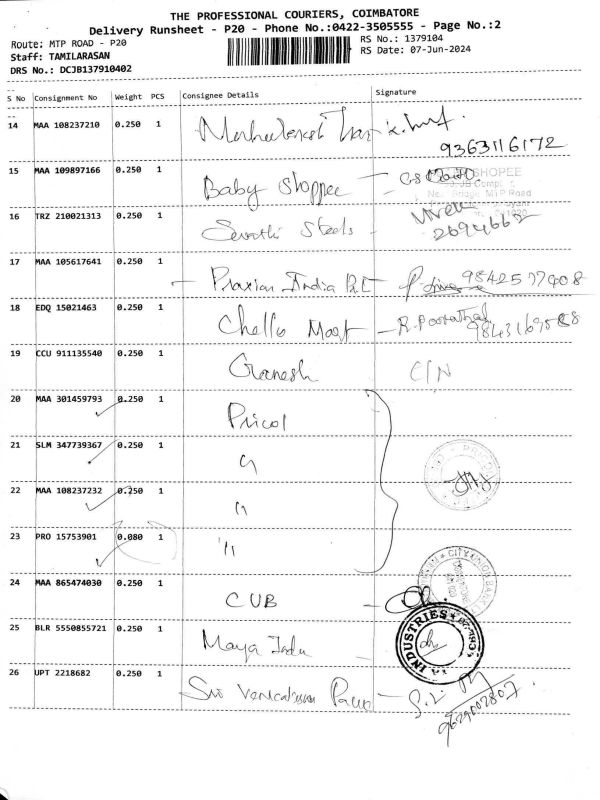 THE PROFESSIONAL COURIERS, COIMBATORE
Delivery Runsheet - P20 - Phone No.:0422-3505555 - Page No.:2
Route: MTP ROAD - P20 RS No.: 1379104
Staff: TAMILARASAN RS Date: 07-Jun-2024
DRS No.: DCJB137910402
S No Consignment No Weight PCS Consignee Details Signature
14 MAA 108237210 0.250 1
9363116172
15 MAA 109897166 0.250 1 Baby Shoppee
SHOPEE
MTP Road
16 TRZ 210021313 0.250 1 Steels
17 MAA 105617641 0.250 1 Praxian India 9842577908
18 EDQ 15021463 0.250 1 Chello
19 CCU 911135540 0.250 1 Ganesh C/N
20 MAA 301459793 0.250 1 Pricol
21 SLM 347739367 0.250 1 "
22 MAA 108237232 0.250 1 "
23 PRO 15753901 0.080 1 "
24 MAA 865474030 0.250 1 CUB
CITY UNION BANK
25 BLR 5550855721 0.250 1 Maya
INDUSTRIES
26 UPT 2218682 0.250 1 Sri